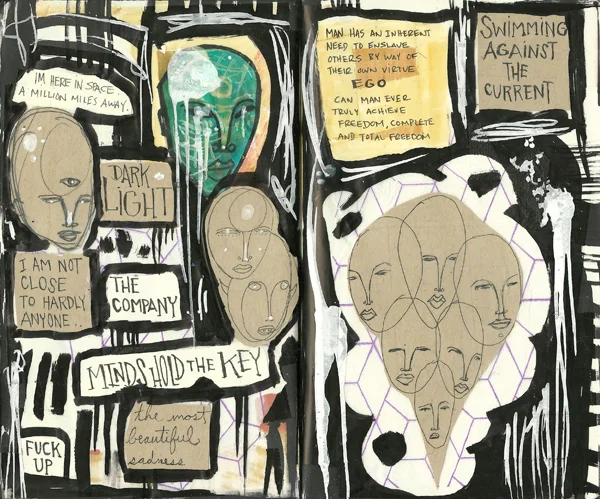 I'M HERE IN SPACE.
A MILLION MILES AWAY.
DARK
LIGHT
I AM NOT
CLOSE
TO HARDLY
ANYONE..
THE
COMPANY
MINDS HOLD THE KEY
the most
beautiful
sadness
FUCK
UP
MAN HAS AN INHERENT
NEED TO ENSLAVE
OTHERS BY WAY OF
THEIR OWN VIRTUE
EGO
CAN MAN EVER
TRULY ACHIEVE
FREEDOM, COMPLETE
AND TOTAL FREEDOM
SWIMMING
AGAINST
THE
CURRENT